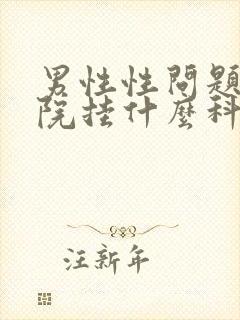 男性性問題
院挂什麼科
汪新年